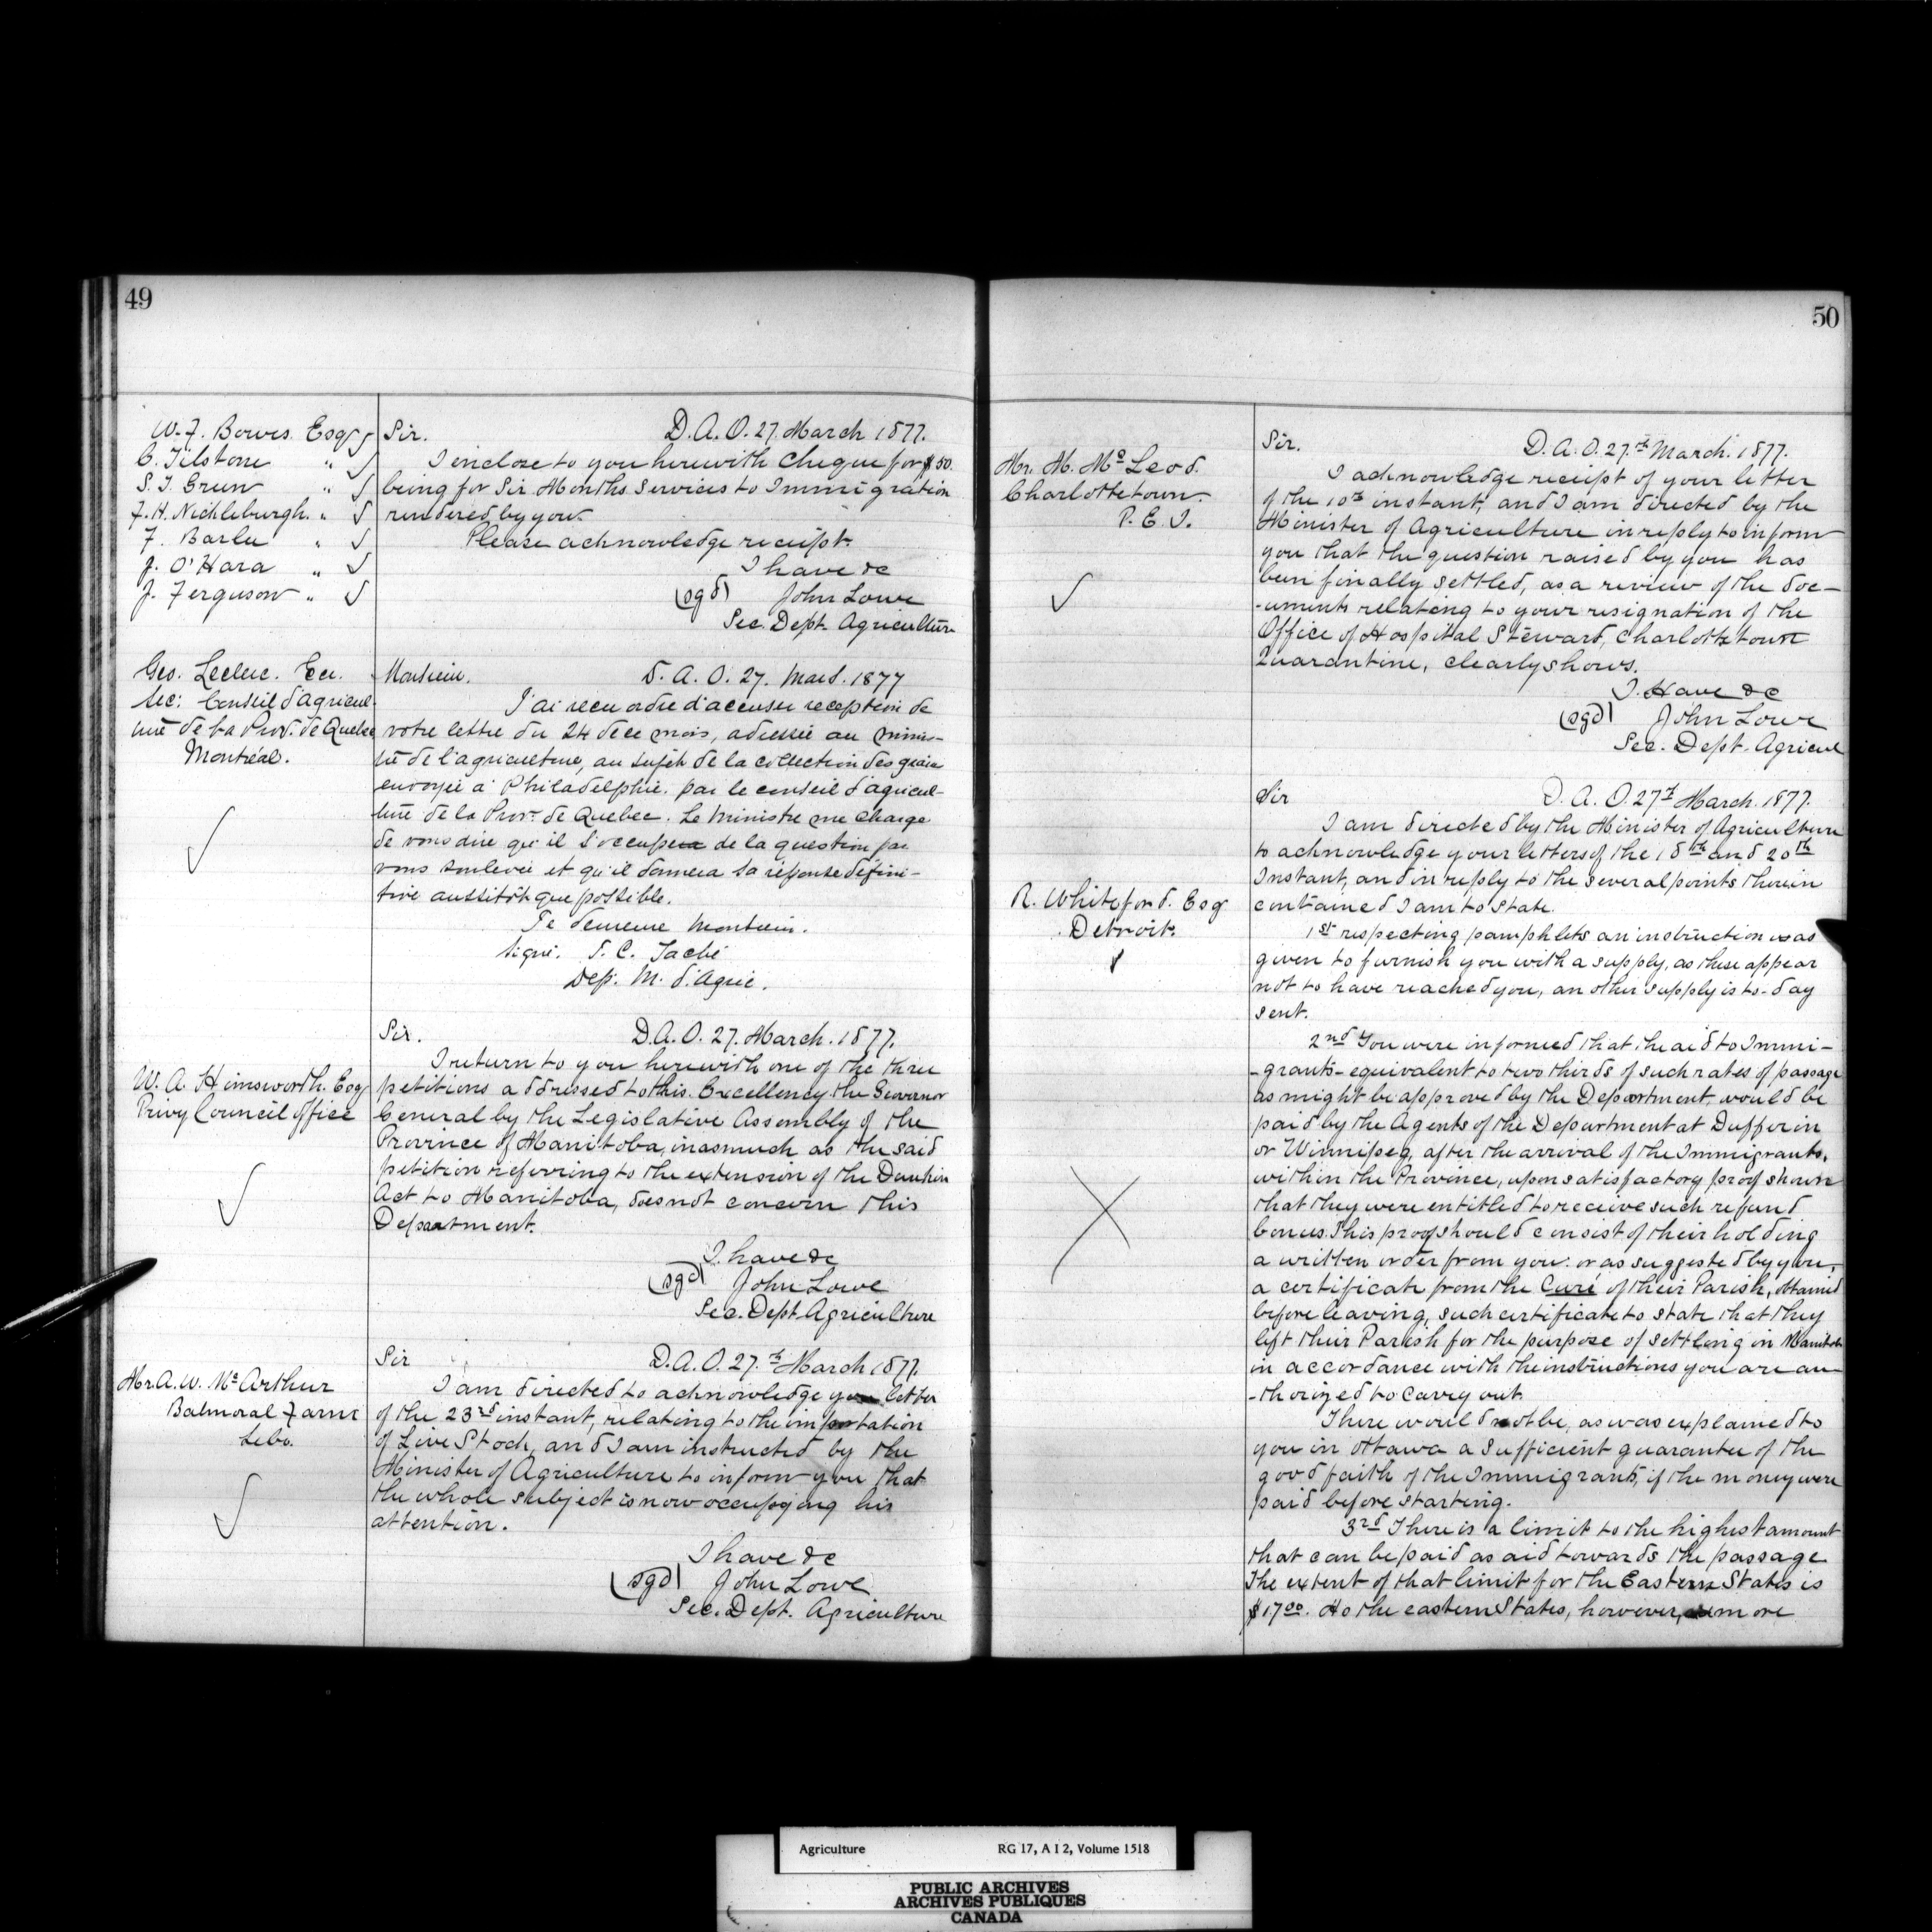 49
W. F. Bowes Esq
C. Tilstone "
S. T. Green "
F. H. Nickleburgh. "
F. Barlee "
J. O'Hara "
J. Ferguson "
Sir. D.A.O. 27. March 1877.
I enclose to you herewith Cheque for $50.
being for Six Months Services to Immigration
rendered by you.
Please acknowledge receipt.
I have &c
(sgd) John Lowe
Sec. Dept. Agriculture
Geo. Leclerc. Ecr.
Sec: Conseil d'agricul-
ture de la Prov. de Quebec
Montréal.
Monsieur. D. A. O. 27. Mars. 1877
J'ai recu ordre d'accuser reception de
votre lettre du 24 de ce mois, adressée au minis-
tre de l'agriculture, au sujet de la collection des grains
envoyée à Philadelphie. par le conseil d'agricul-
ture de la Prov. de Quebec. Le Ministre me charge
de vous dire qu'il s'occupe de la question par
vous soulevée et qu'il donnera sa réponse défini-
tive aussitôt que possible.
Je demeure Monsieur.
signé. J. C. Taché
Dep. M. d'Agric.
W. A. Himsworth. Esq
Privy Council office
Sir. D.A.O. 27. March. 1877.
I return to you herewith one of the three
petitions addressed to this Excellency the Governor
General by the Legislative Assembly of the
Province of Manitoba, inasmuch as the said
petition referring to the extension of the Dunkin
Act to Manitoba, does not concern this
Department.
I have &c
(sgd) John Lowe
Sec. Dept. Agriculture
Mr A. W. McArthur
Balmoral Farm
Lebo.
Sir D.A.O. 27.th March 1877.
I am directed to acknowledge your letter
of the 23rd instant, relating to the importation
of Live Stock, and I am instructed by the
Minister of Agriculture to inform you that
the whole subject is now occupying his
attention.
I have &c
(sgd) John Lowe
Sec. Dept. Agriculture
50
Mr. M. McLeod.
Charlottetown.
P. E. I.
Sir. D.A.O. 27.th March. 1877.
I acknowledge receipt of your letter
of the 10th instant, and I am directed by the
Minister of Agriculture in reply to inform
you that the question raised by you has
been finally settled, as a review of the doc-
-uments relating to your resignation of the
Office of Hospital Steward, Charlottetown
Quarantine, clearly shows.
I. Have &c
(sgd) John Lowe
Sec. Dept. Agricul
R. Whiteford. Esq
Detroit.
Sir D. A. O. 27th March. 1877.
I am directed by the Minister of Agriculture
to acknowledge your letters of the 18th and 20th
Instant, and in reply to the several points therein
contained I am to state.
1st respecting pamphlets an instruction was
given to furnish you with a supply, as these appear
not to have reached you, an other supply is to-day
sent.
2nd You were informed that the aid to Immi-
-grants - equivalent to two thirds of such rates of passage
as might be approved by the Department would be
paid by the Agents of the Department at Dufferin
or Winnipeg, after the arrival of the Immigrants.
within the Province, upon satisfactory proof shown
that they were entitled to receive such refund
bonus. This proof should consist of their holding
a written order from you: or as suggested by you,
a certificate from the Curé of their Parish, obtained
before leaving, such certificate to state that they
left their Parish for the purpose of settling in Manitoba
in accordance with the instructions you are au-
-thorized to carry out.
There would not be, as was explained to
you in Ottawa a sufficient guarantee of the
good faith of the Immigrants, if the money were
paid before starting.
3rd There is a limit to the highest amount
that can be paid as aid towards the passage
The extent of that limit for the Eastern States is
$17.00. As the eastern States, however, more
Agriculture RG 17, A I 2, Volume 1518
PUBLIC ARCHIVES
ARCHIVES PUBLIQUES
CANADA